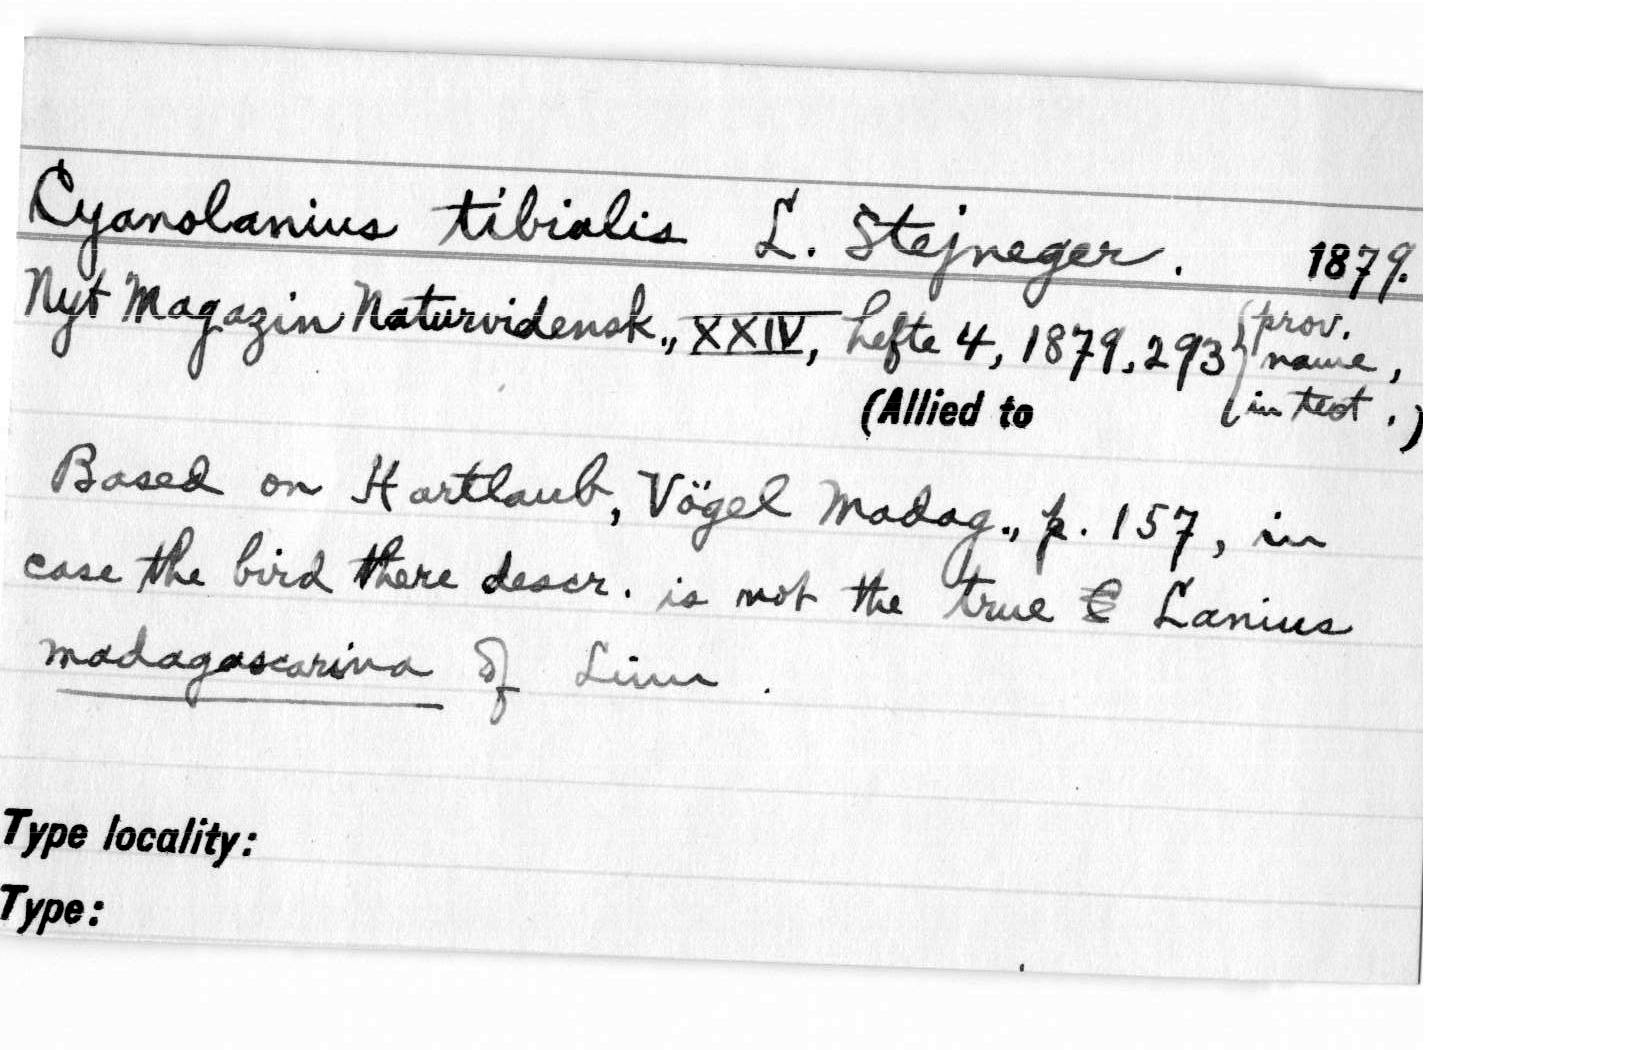 Cyanolanius tibialis L. Stejneger. 1879.
Nyt Magazin Naturvidensk., XXIV, hefte 4, 1879, 293 {prov. name, in text.
(Allied to )
Based on Hartlaub, Vögel Madag., p. 157, in
case the bird there descr. is not the true Lanius
madagascarina of Linn.
Type locality:
Type: